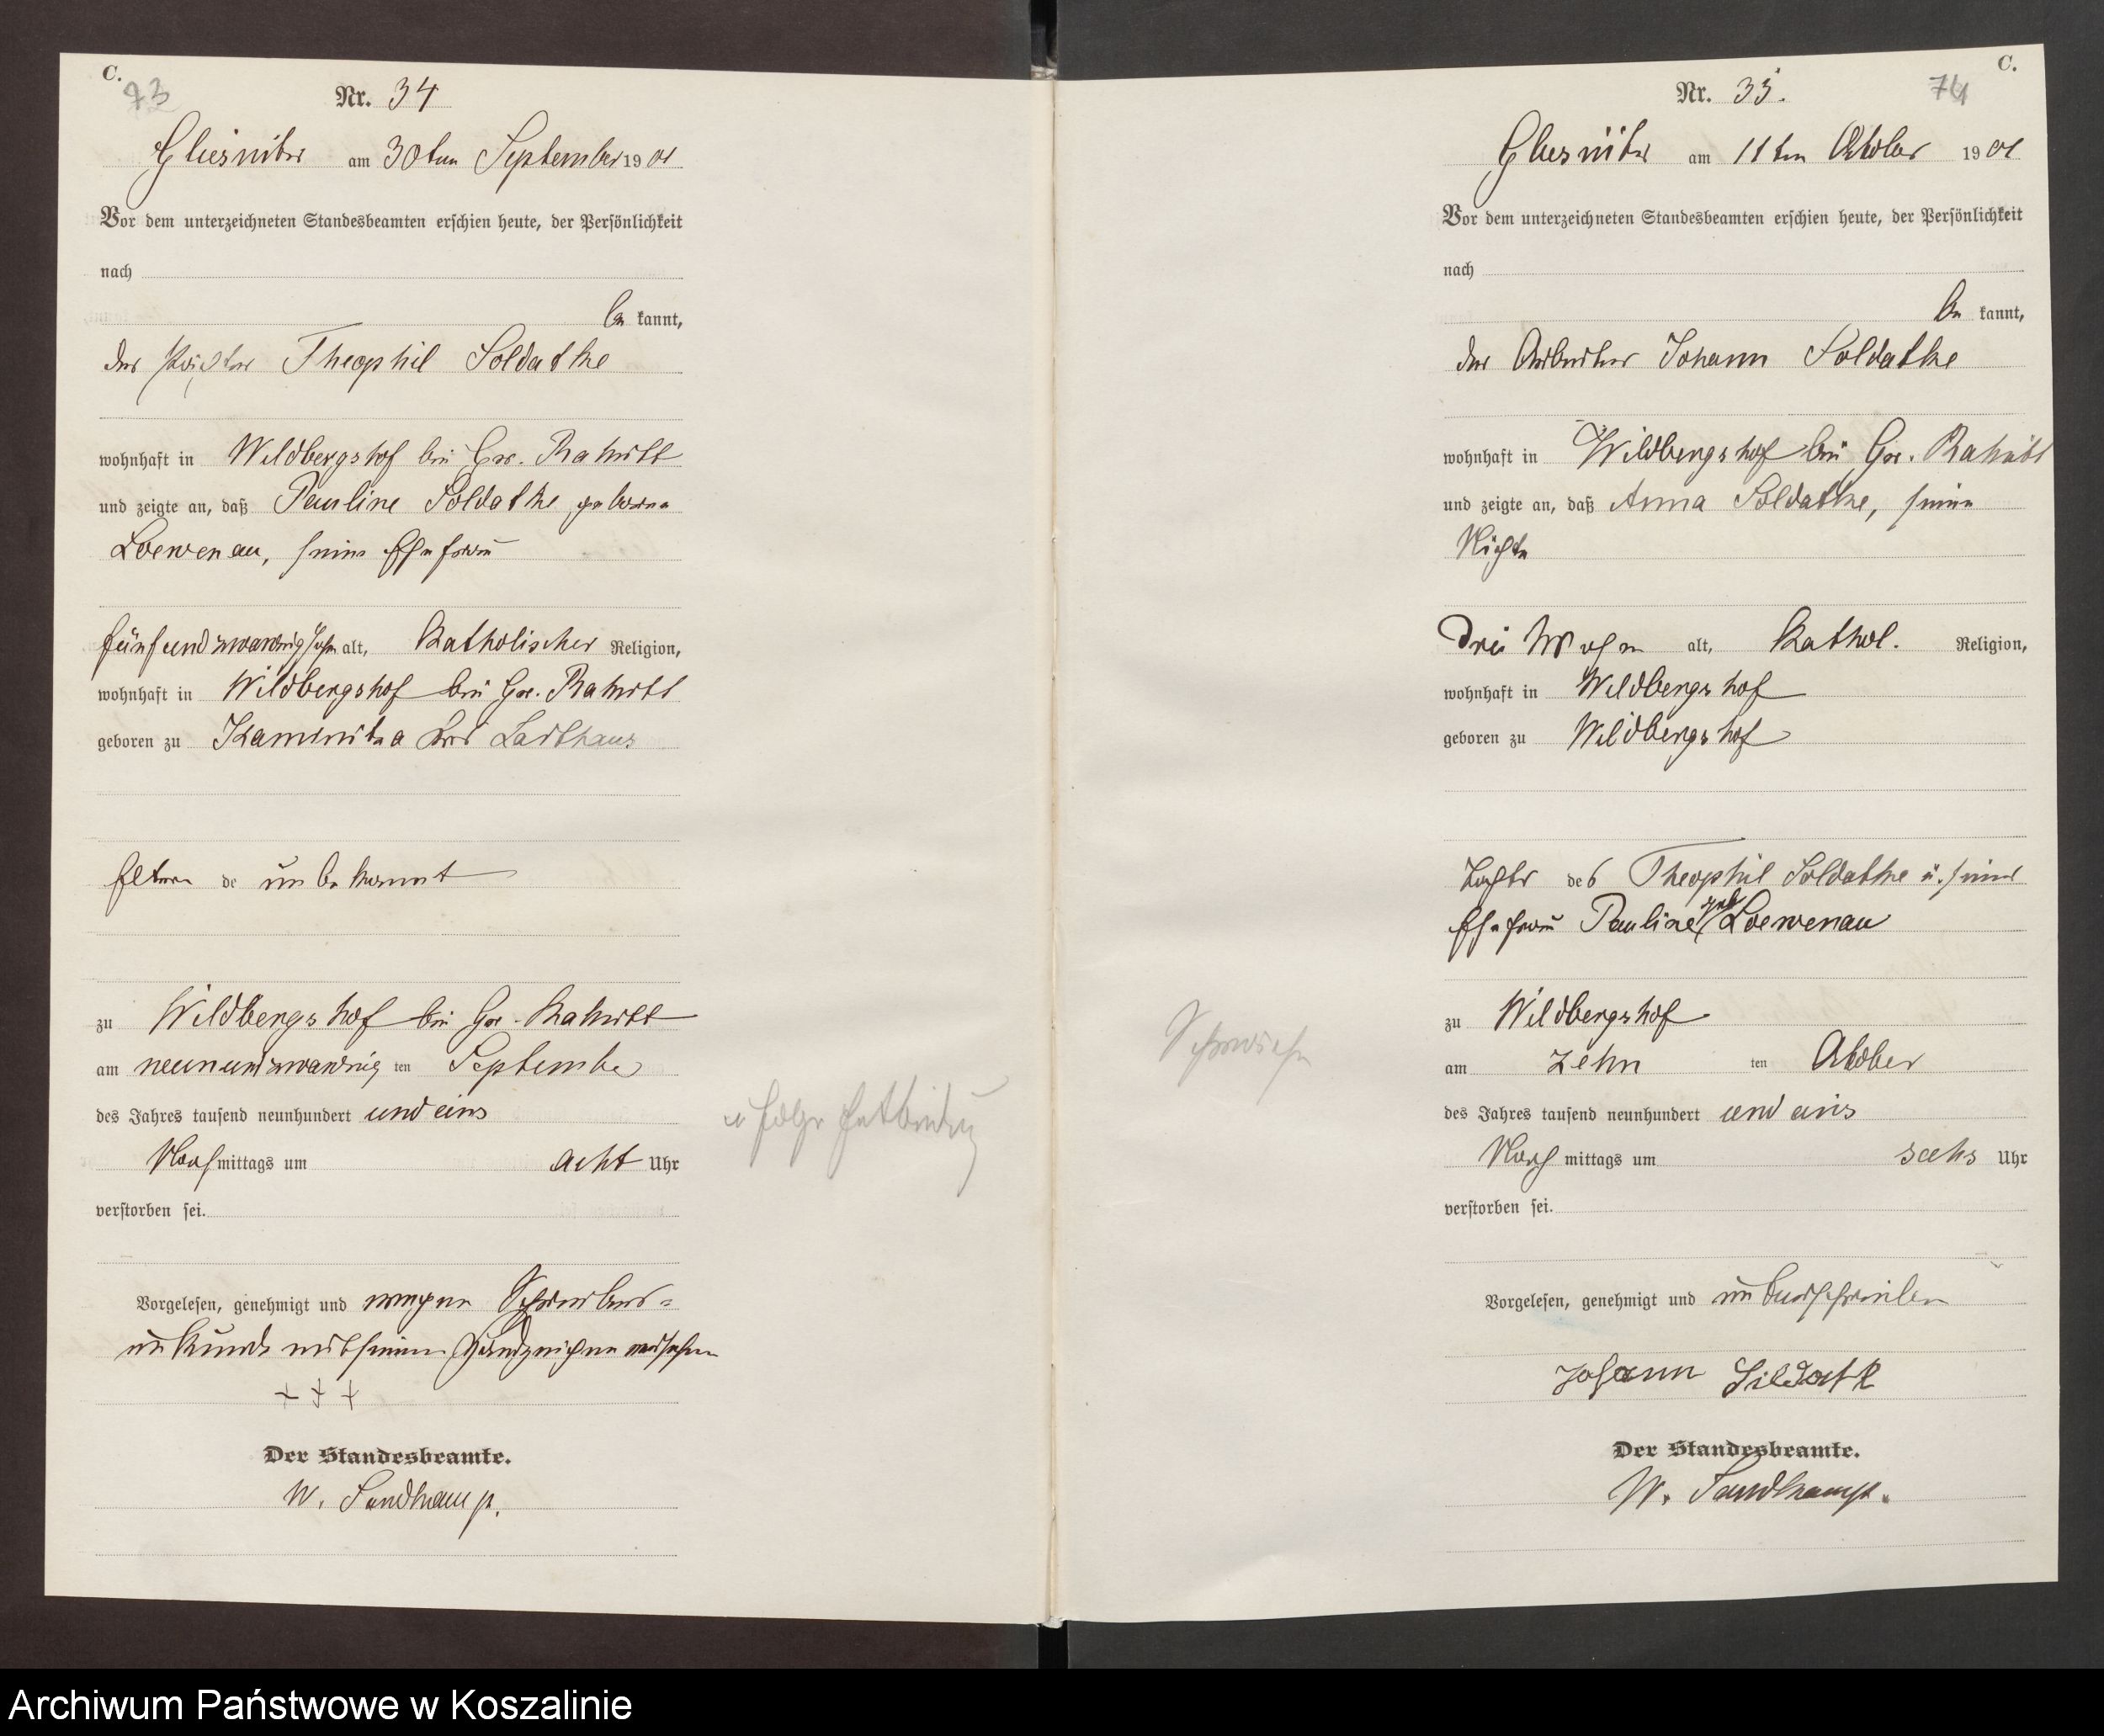 C.
73
Nr. 34
Gliesnitz am 30ten September 1901
Vor dem unterzeichneten Standesbeamten erschien heute, der Persönlichkeit
nach
be kannt,
der Pächter Theophil Soldatke
wohnhaft in Wildbergshof bei Gr. Rakitt
und zeigte an, daß Pauline Soldatke, geborene
Loewenau, seine Ehefrau
fünfundzwanzig Jahre alt, katholischer Religion,
wohnhaft in Wildbergshof bei Gr. Rakitt
geboren zu Kaminitza Kreis Carthaus
Eltern de unbekannt
zu Wildbergshof bei Gr. Rakitt
am neunundzwanzig ten September
des Jahres tausend neunhundert und eins
Nach mittags um acht Uhr
verstorben sei.
Vorgelesen, genehmigt und wegen Schreibens-
unkunde mit seinem Handzeichen versehen
+ + +
Der Standesbeamte.
W. Sandkamp.
Folge Entbindung
C.
74
Nr. 35.
Gliesnitz am 11ten Oktober 1901
Vor dem unterzeichneten Standesbeamten erschien heute, der Persönlichkeit
nach
be kannt,
der Arbeiter Johann Soldatke
wohnhaft in Wildbergshof bei Gr. Rakitt
und zeigte an, daß Anna Soldatke, seine
Nichte
Drei Wochen alt, kathol. Religion,
wohnhaft in Wildbergshof
geboren zu Wildbergshof
Tochter des Theophil Soldatke u. seiner
Ehefrau Pauline geb Loewenau
zu Wildbergshof
am zehn ten Oktober
des Jahres tausend neunhundert und eins
Nach mittags um sechs Uhr
verstorben sei.
Vorgelesen, genehmigt und unterschrieben
Johann Sildatk
Der Standesbeamte.
W. Sandkamp.
Schwäche
Archiwum Państwowe w Koszalinie